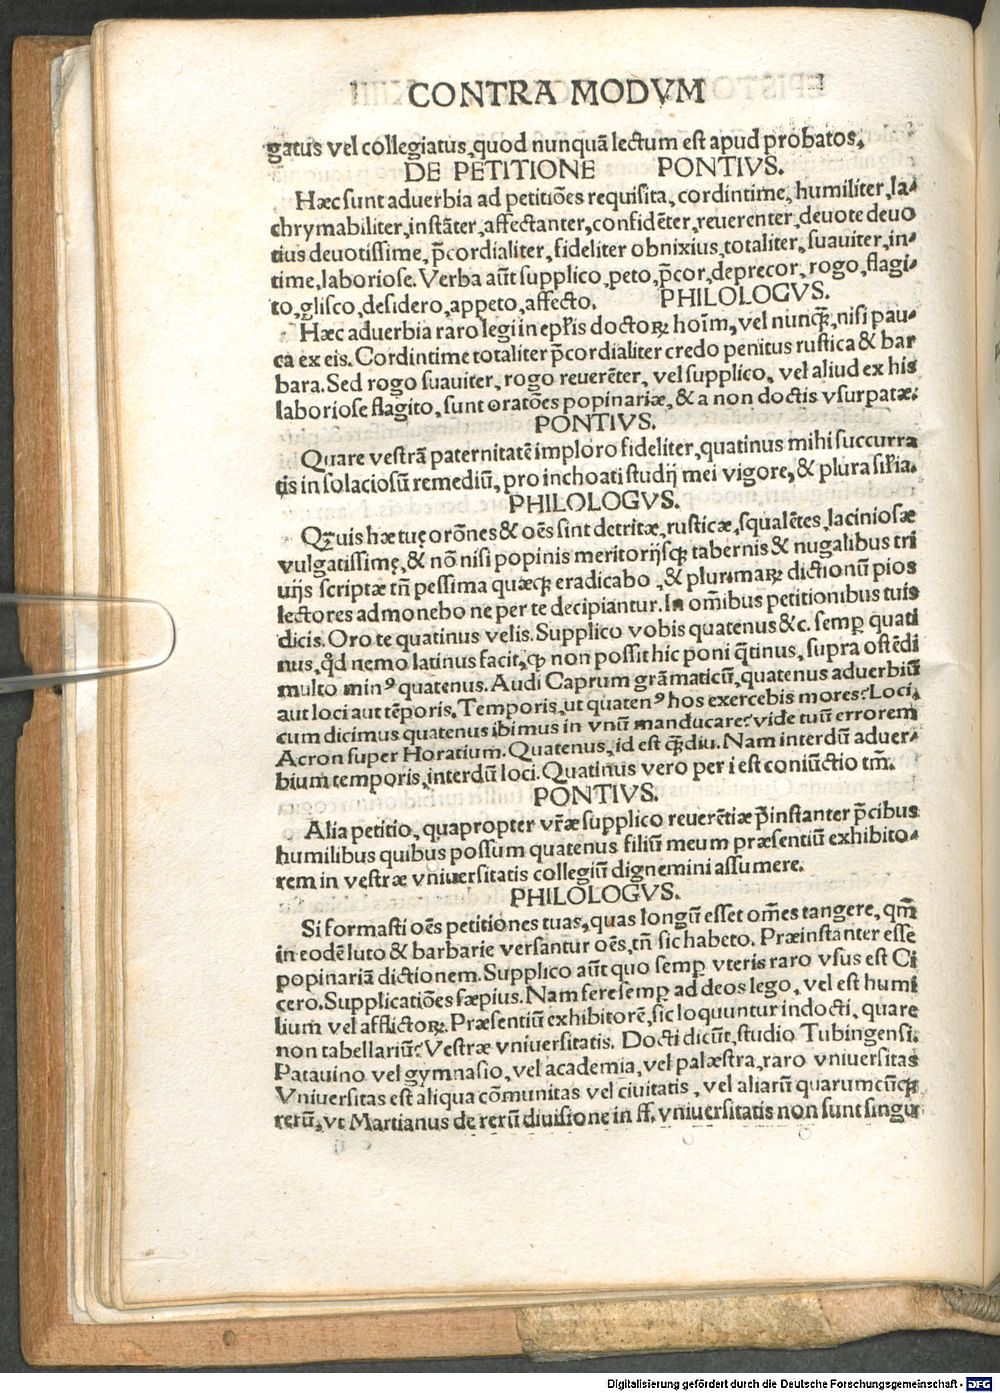 CONTRA MODVM
gatus vel collegiatus, quod nunquā lectum est apud probatos.
DE PETITIONE PONTIVS.
Hæc sunt aduerbia ad petitiōes requisita, cordintime, humiliter, la⸗
chrymabiliter, instāter, affectanter, confidēter, reuerenter, deuote deuo
tius deuotissime, p̄cordialiter, fideliter obnixius, totaliter, suauiter, in⸗
time, laboriose. Verba aūt supplico, peto, p̄cor, deprecor, rogo, flagi⸗
to, glisco, desidero, appeto, affecto. PHILOLOGVS.
Hæc aduerbia raro legi in ep̄lis doctoꝝ hoīm, vel nunq̄, nisi pau⸗
ca ex eis. Cordintime totaliter p̄cordialiter credo penitus rustica & bar
bara. Sed rogo suauiter, rogo reuerēter, vel supplico, vel aliud ex his
laboriose flagito, sunt oratōes popinariæ, & a non doctis vsurpatæ.
PONTIVS.
Quare vestrā paternitatē imploro fideliter, quatinus mihi succurra
tis in solaciosū remediū, pro inchoati studij mei vigore, & plura sil̄ia.
PHILOLOGVS.
Qꝫuis hæ tuę orōnes & oēs sint detritæ, rusticæ, squalētes, laciniosæ
vulgatissimę, & nō nisi popinis meritorijsqꝫ tabernis & nugalibus tri
uijs scriptæ tn̄ pessima quæqꝫ eradicabo, & plurimaꝝ dictionū pios
lectores admonebo ne per te decipiantur. In om̄ibus petitionibus tuis
dicis. Oro te quatinus velis. Supplico vobis quatenus &c. semꝑ quati
nus, qd̄ nemo latinus facit, ꝙ non possit hic poni q̄tinus, supra ostēdi
multo minꝰ quatenus. Audi Caprum grāmaticū, quatenus aduerbiū
aut loci aut tēporis. Temporis, ut quatenꝰ hos exercebis mores? Loci,
cum dicimus quatenus ibimus in vnū manducare? vide tuū errorem
Acron super Horatium. Quatenus, id est q̄diu. Nam interdū aduer⸗
bium temporis, interdū loci. Quatinus vero per i est coniūctio tm̄.
PONTIVS.
Alia petitio, quapropter vr̄æ supplico reuerētiæ p̄instanter p̄cibus
humilibus quibus possum quatenus filiū meum præsentiū exhibito⸗
rem in vestræ vniuersitatis collegiū dignemini assumere.
PHILOLOGVS.
Si formasti oēs petitiones tuas, quas longū esset om̄es tangere, qm̄
in eodē luto & barbarie versantur oēs, tn̄ sic habeto. Præinstanter esse
popinariā dictionem. Supplico aūt quo semꝑ vteris raro vsus est Ci
cero. Supplicatiōes sæpius. Nam fere semꝑ ad deos lego, vel est humi
lium vel afflictoꝝ. Præsentiū exhibitorē, sic loquuntur indocti, quare
non tabellariū? Vestræ vniuersitatis. Docti dicūt, studio Tubingensi.
Patauino vel gymnasio, vel academia, vel palæstra, raro vniuersitas
Vniuersitas est aliqua cōmunitas vel ciuitatis, vel aliarū quarumcūqꝫ
rerū, vt Martianus de rerū diuisione in ff. vniuersitatis non sunt singu
Digitalisierung gefördert durch die Deutsche Forschungsgemeinschaft - DFG